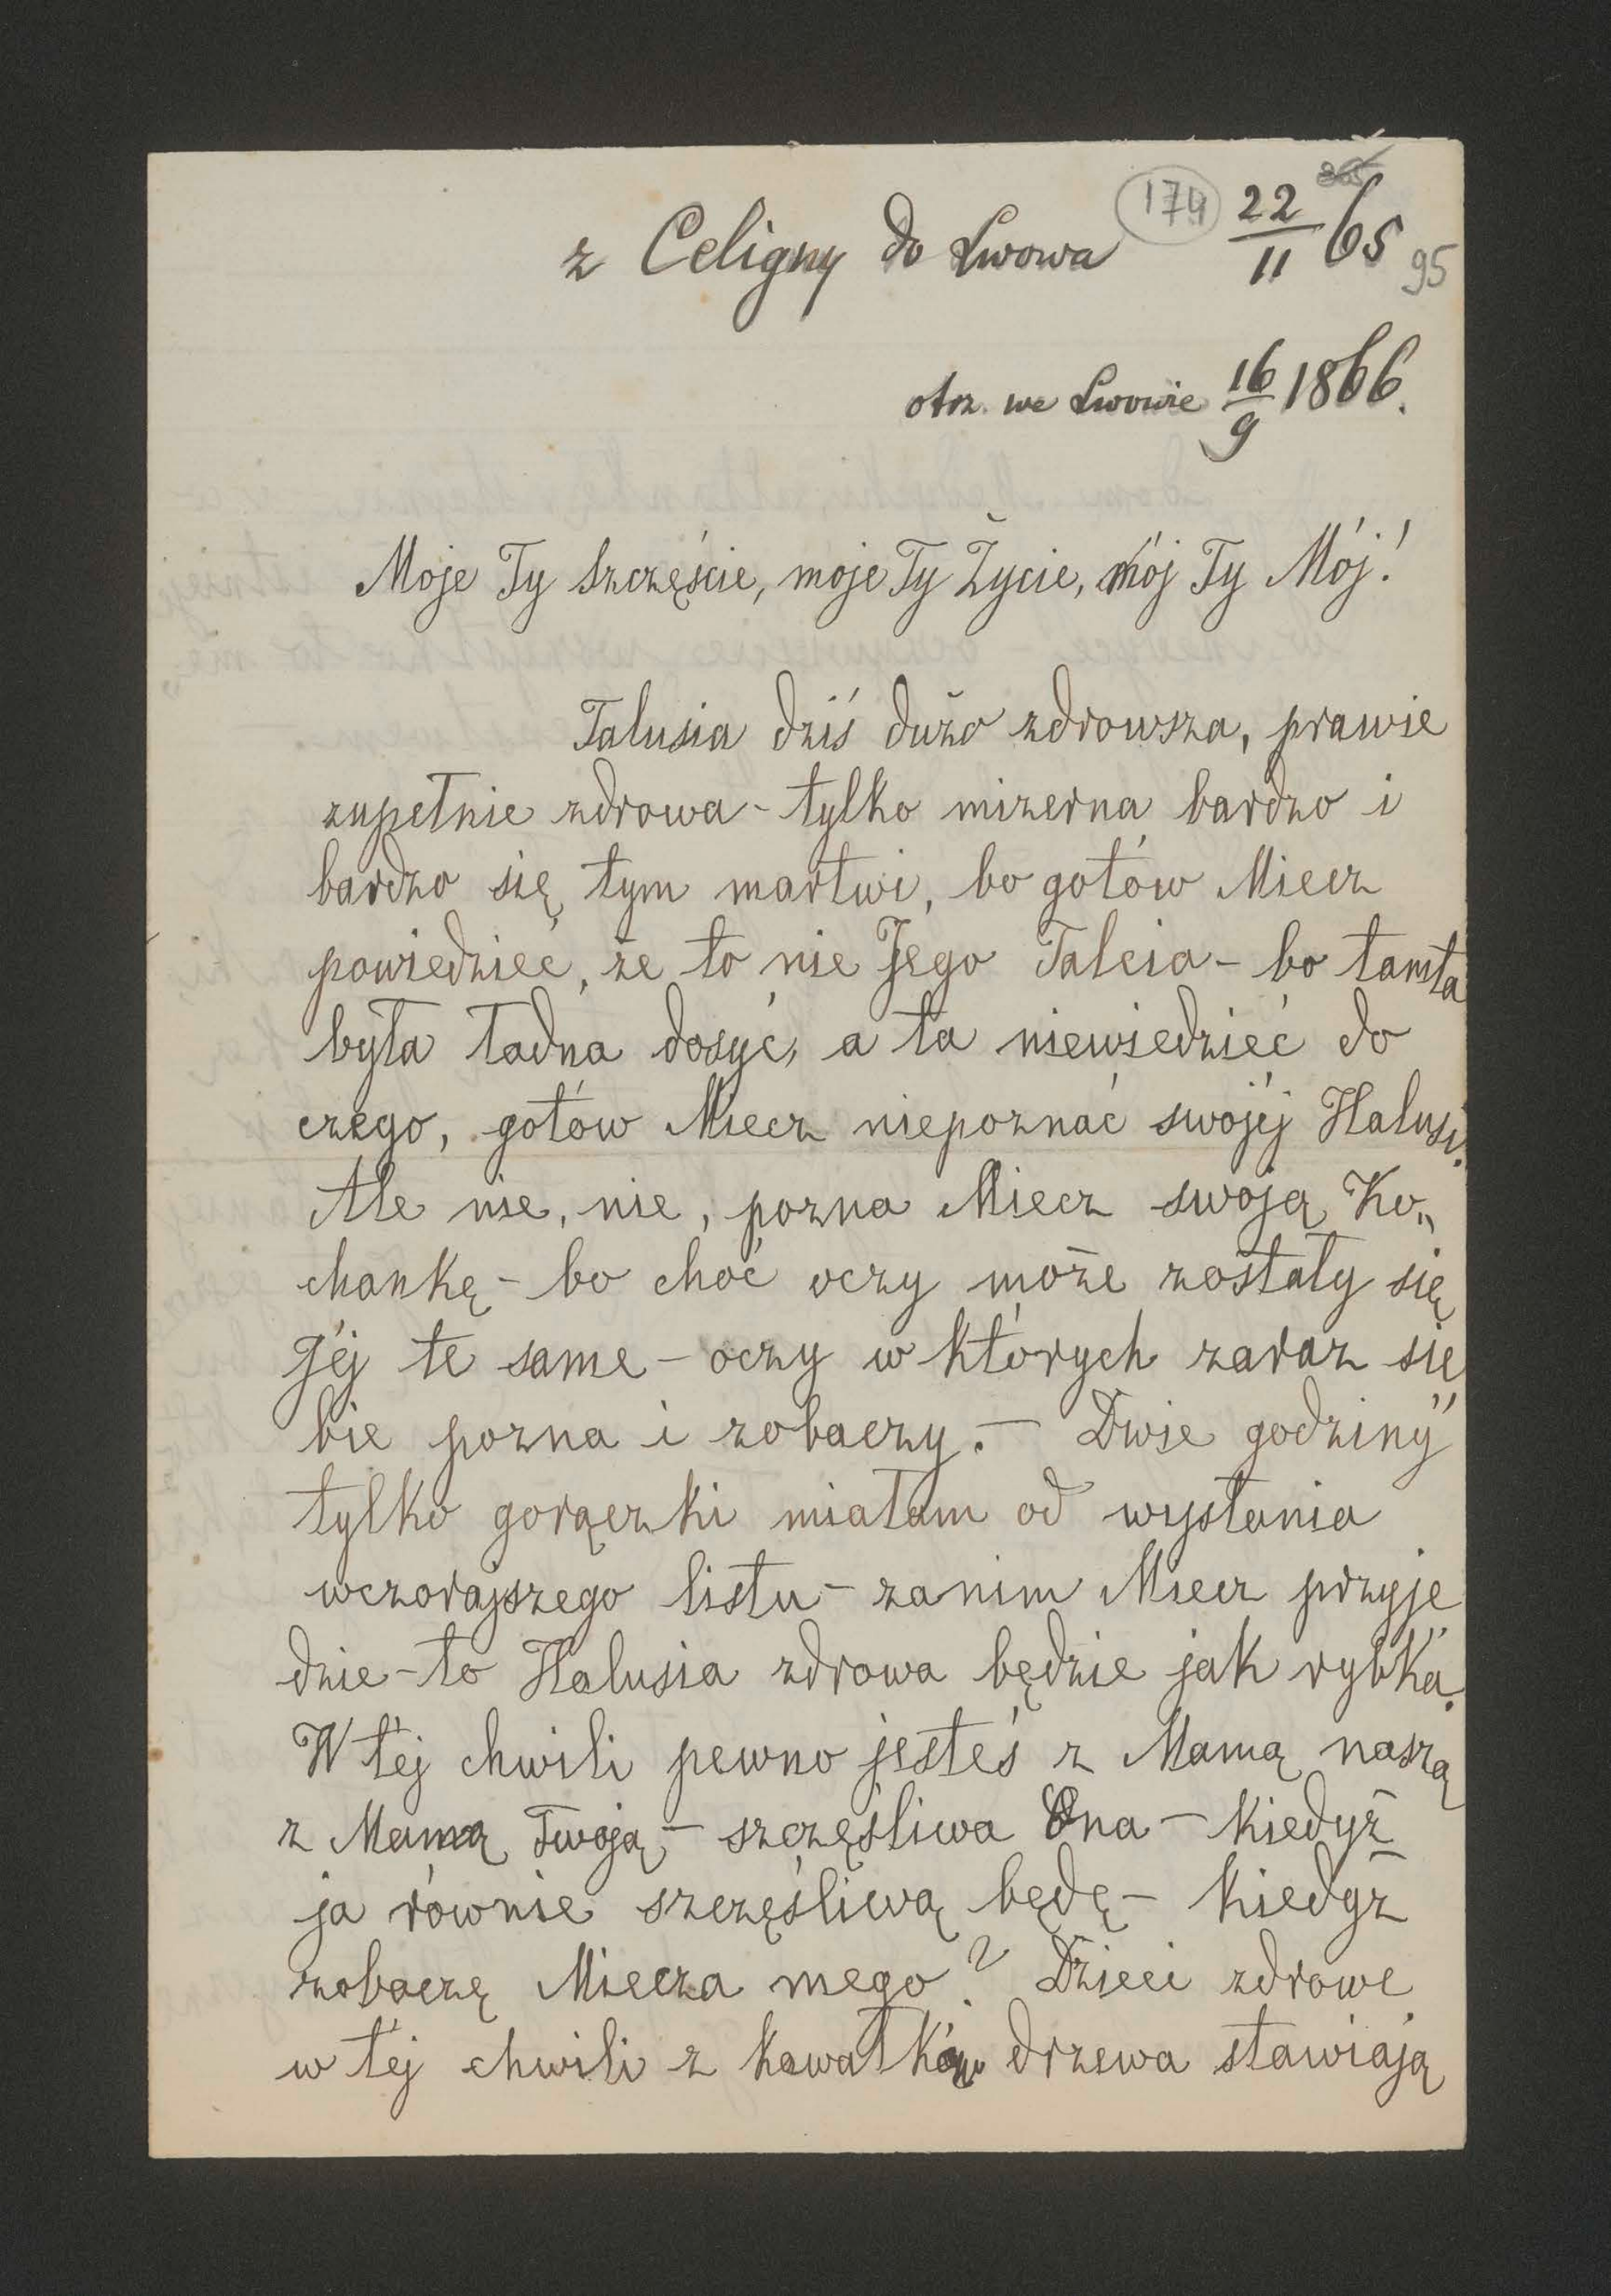 174
z Celigny do Lwowa 22/11 65 95
otrz. we Lwowie 16/9 1866.
Moje Ty Szczęście, moje Ty Życie, mój Ty Mój!
Talusia dziś dużo zdrowsza, prawie
zupełnie zdrowa - tylko mizerna bardzo i
bardzo się tym martwi, bo gotów Miecz
powiedzieć, że to nie Jego Talcia - bo tamta
była ładna dosyć, a ta niewiedzieć do
czego, gotów Miecz niepoznać swojéj Halusi.
Ale nie, nie, pozna Miecz swoją Ko„
chankę - bo choć oczy może zostały się
Jéj te same - oczy w których zaraz sie
bie pozna i zobaczy. - Dwie godziny"
tylko gorączki miałam od wysłania
wczorajszego listu - zanim Miecz przyje
dzie - to Halusia zdrowa będzie jak rybka.
W téj chwili pewno jesteś z Mamą naszą
z Mamą Twoją - szczęśliwa Ona - kiedyż
ja równie szczęśliwą będę - kiedyż
zobaczę Miecza mego? Dzieci zdrowe
w téj chwili z kawałków drzewa stawiają